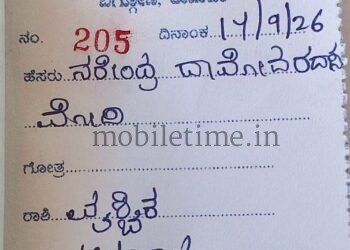 ನಂ. 205 ದಿನಾಂಕ 17/9/26
ಹೆಸರು ನರೇಂದ್ರ ದಾಮೋದರದಾಸ
ಮೋದಿ
mobiletime.in
ಗೋತ್ರ
ರಾಶಿ ವೃಶ್ಚಿಕ